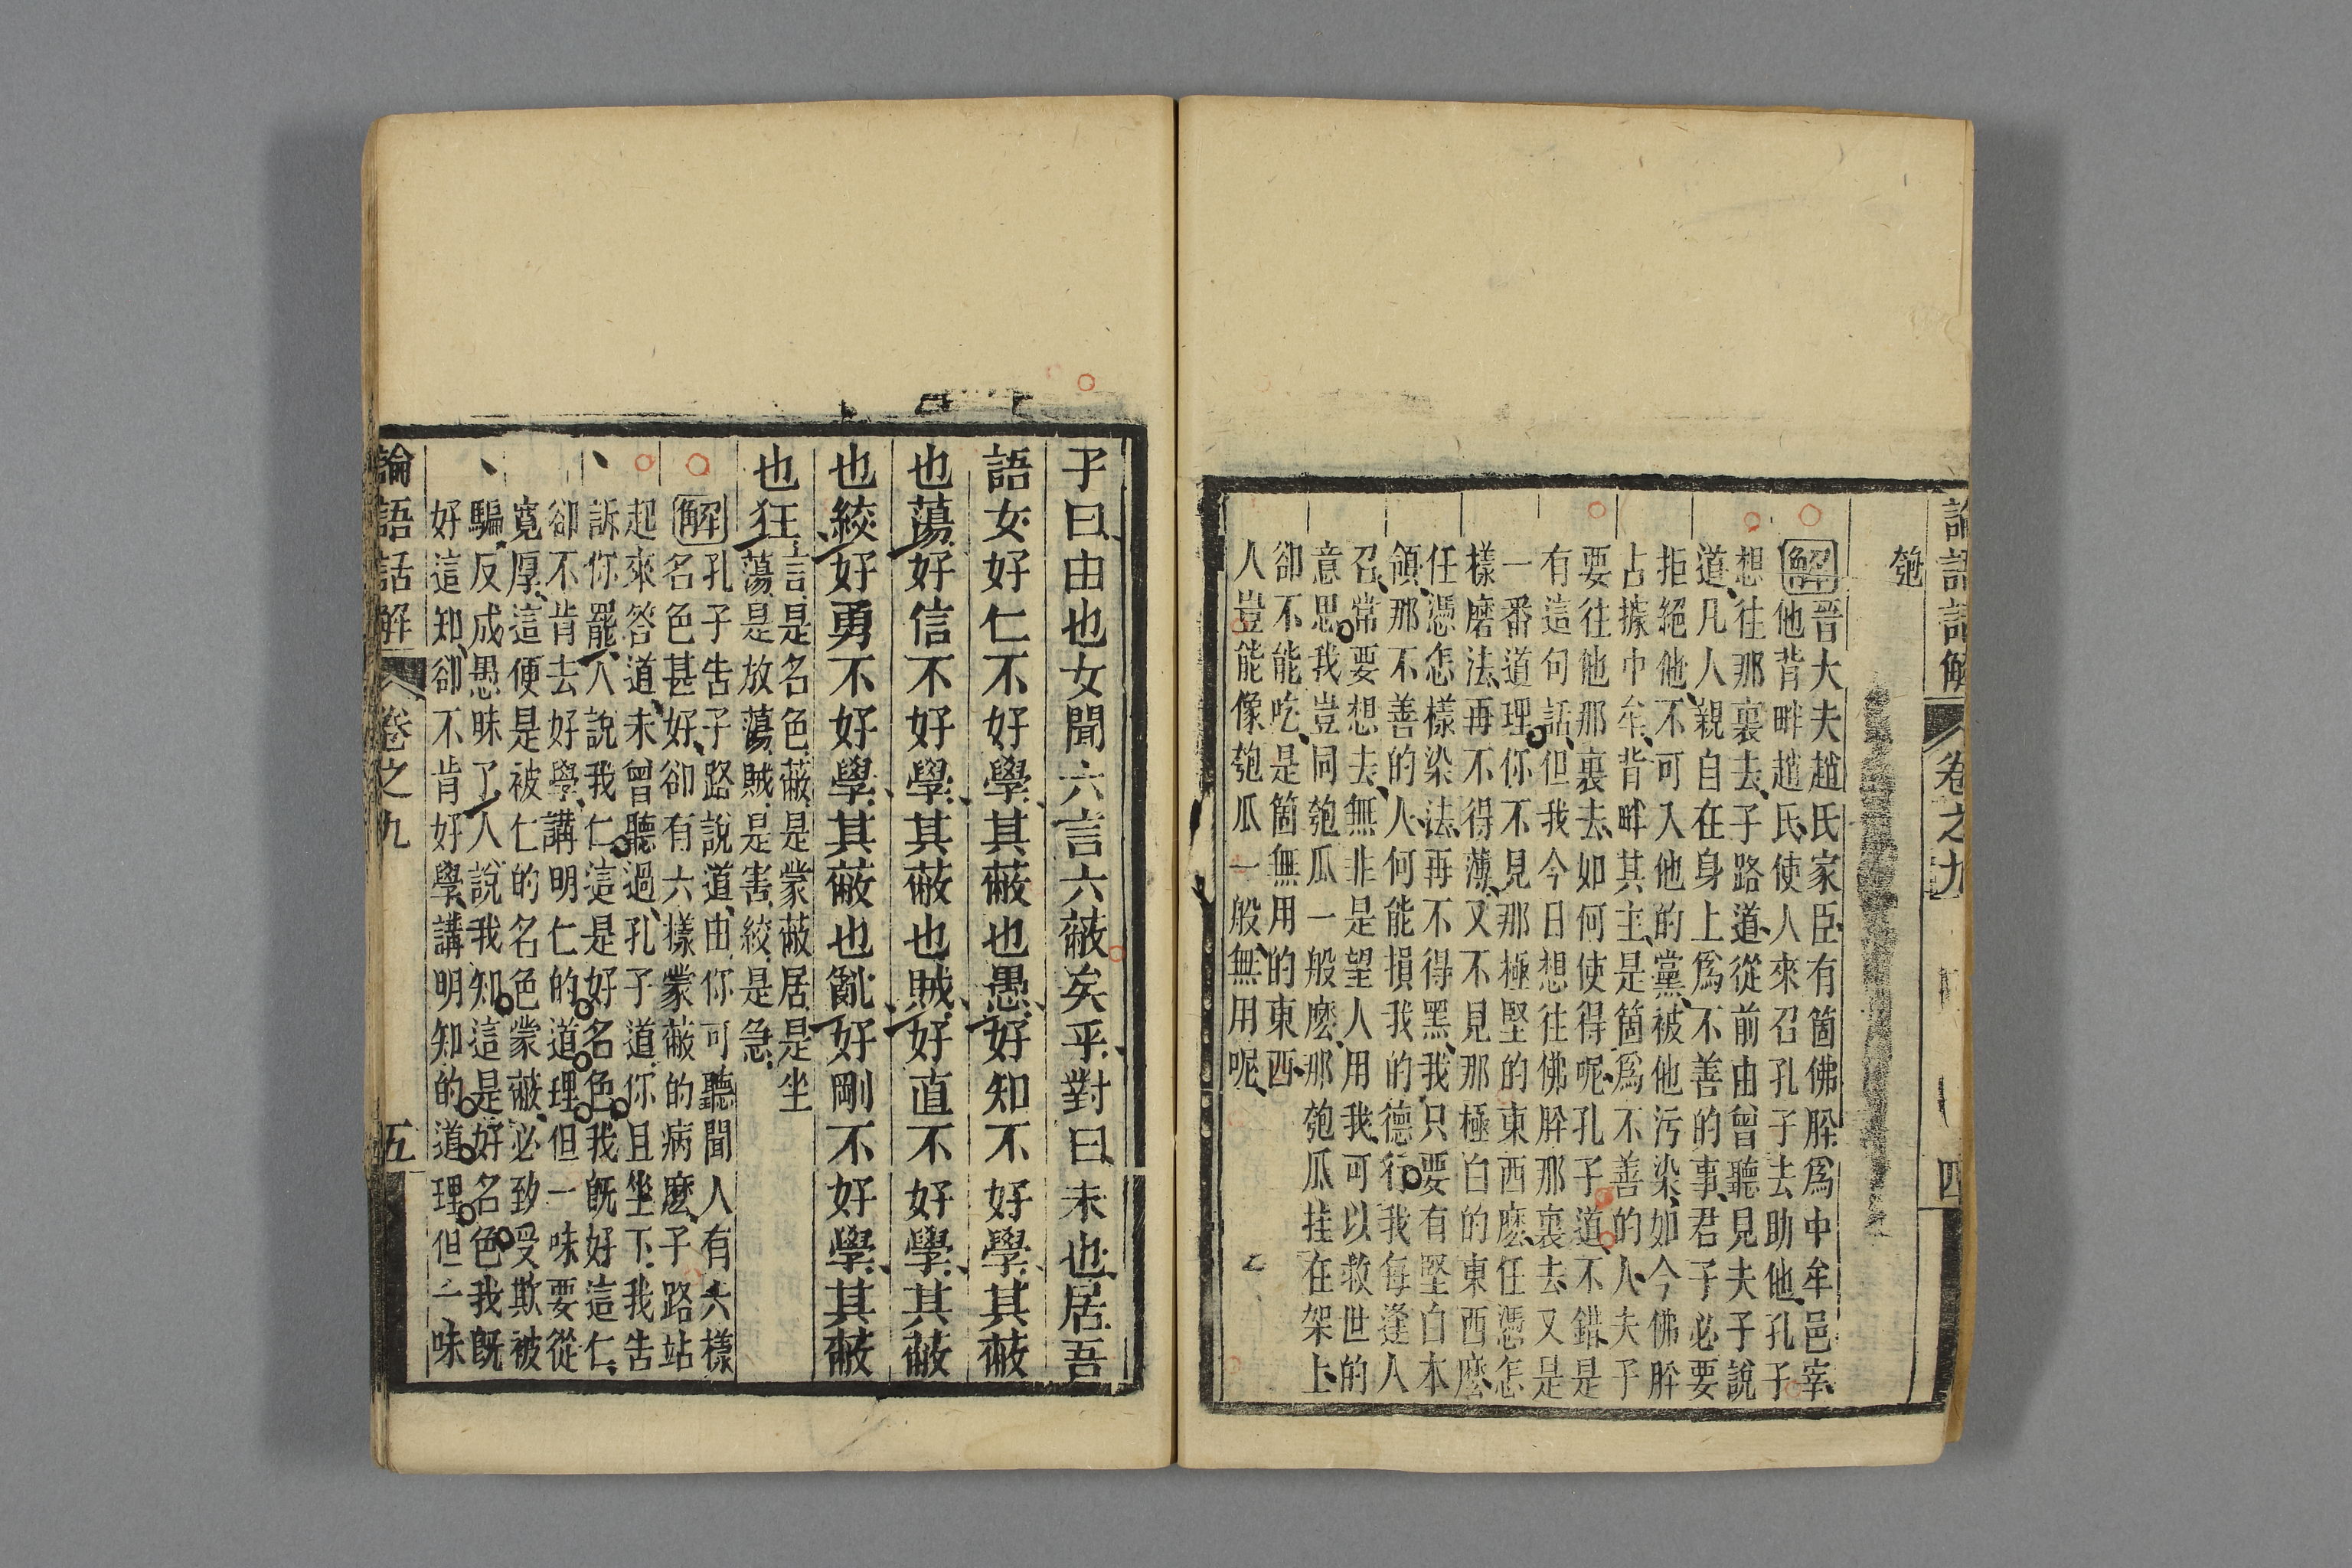 論語話解 卷之九 四
匏
解 晉大夫趙氏家臣有箇佛肸爲中牟邑宰
他背畔趙氏使人來召孔子去助他孔子
想往那裏去子路道從前由曾聽見夫子說
道凡人親自在身上爲不善的事君子必要
拒絕他不可入他的黨被他污染如今佛肸
占據中牟背畔其主是箇爲不善的人夫子
要往他那裏去如何使得呢孔子道不錯是
有這句話但我今日想往佛肸那裏去又是
一番道理你不見那極堅的東西麽任憑怎
樣磨法再不得薄又不見那極白的東西麽
任憑怎樣染法再不得黑我只要有堅白本
領那不善的人何能損我的德行我每逢人
召常要想去無非是望人用我可以救世的
意思我豈同匏瓜一般麽那匏瓜挂在架上
卻不能吃是箇無用的東西
人豈能像匏瓜一般無用呢
子曰由也女聞六言六蔽矣乎對曰未也居吾
語女好仁不好學其蔽也愚好知不好學其蔽
也蕩好信不好學其蔽也賊好直不好學其蔽
也絞好勇不好學其蔽也亂好剛不好學其蔽
也狂 言是名色蔽是蒙蔽居是坐
蕩是放蕩賊是害絞是急
解 孔子告子路說道由你可聽聞人有六樣
名色甚好卻有六樣蒙蔽的病麽子路站
起來答道未曾聽過孔子道你且坐下我告
訴你罷人說我仁這是好名色我既好這仁
卻不肯去好學講明仁的道理但一味要從
寬厚這便是被仁的名色蒙蔽必致受欺被
騙反成愚昧了人說我知這是好名色我既
好這知卻不肯好學講明知的道理但一味
論語話解 卷之九 五